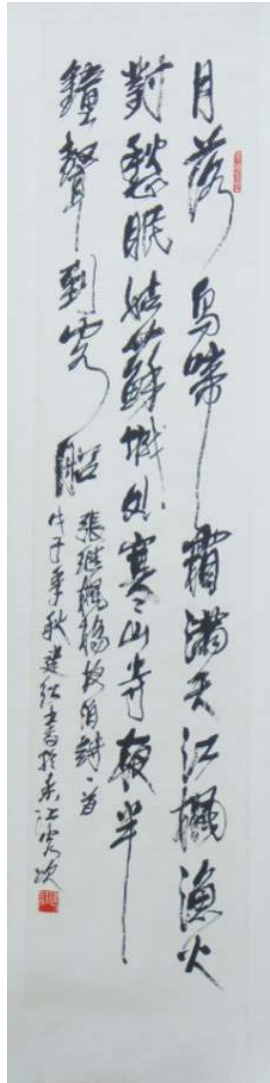 月落烏啼霜滿天江楓漁火
對愁眠姑蘇城外寒山寺夜半
鐘聲到客船
張繼楓橋夜泊詩一首
戊子季秋建紅書於香江客次